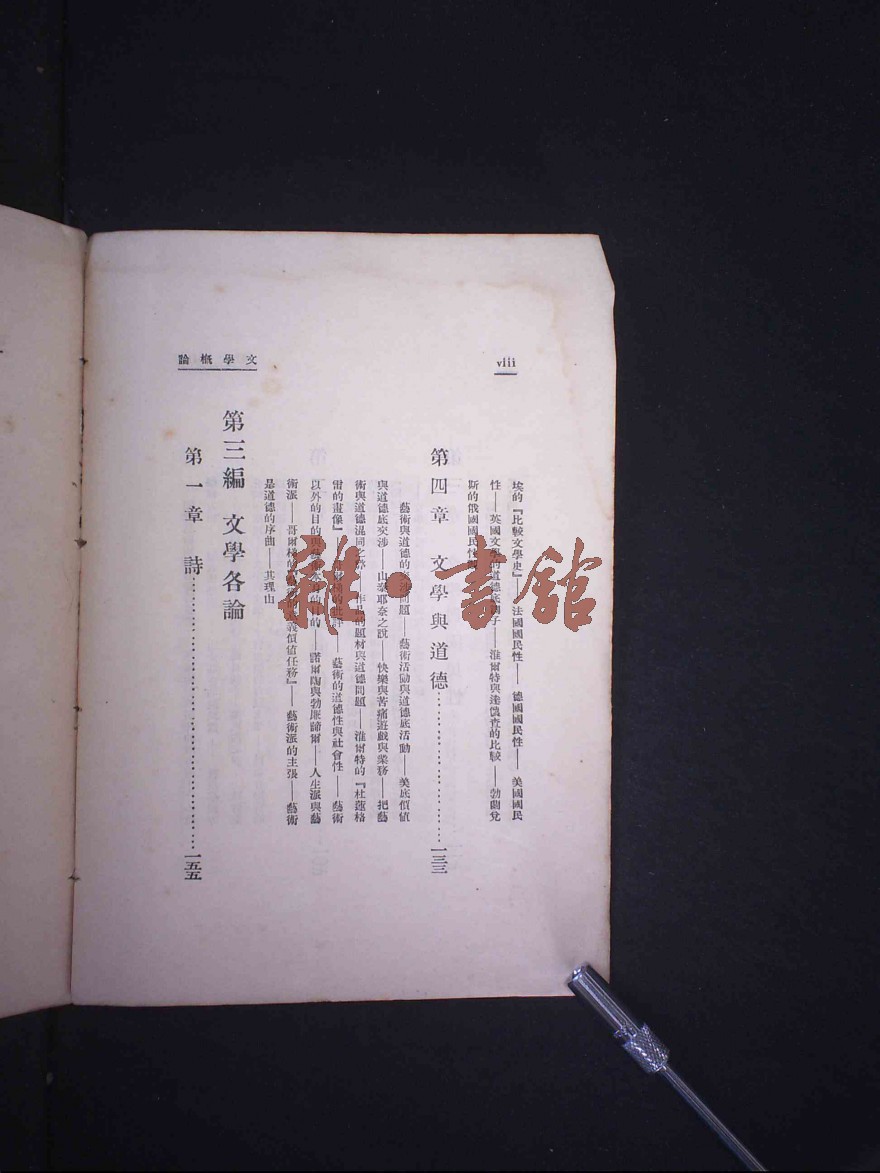 viii
文學概論
埃的『比較文學史』——法國國民性——德國國民性——美國國民
性——英國文學的道德底調子——淮爾特與達慎查的比較——勃蘭兌
斯的俄國國民性
第四章 文學與道德…………一三三
藝術與道德的 問題——藝術活動與道德底活動——美底價值
與道德底交涉——山泰耶奈之說——快樂與苦痛遊戲與業務——把藝
術與道德混同之弊——作品的題材與道德問題——淮爾特的『杜蓮格
雷的畫像』 的批評——藝術的道德性與社會性——藝術
以外的目的與藝術 的目的——諾爾陶與勃廉蹄爾——人生派與藝
術派——哥爾棧的 義價值任務』——藝術派的主張——藝術
是道德的序曲——其理由
第三編 文學各論
第一章 詩…………一五五
雜·書館